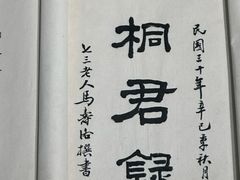 民國三十年辛巳季秋月
桐君錄
七三老人馬壽洺撰書